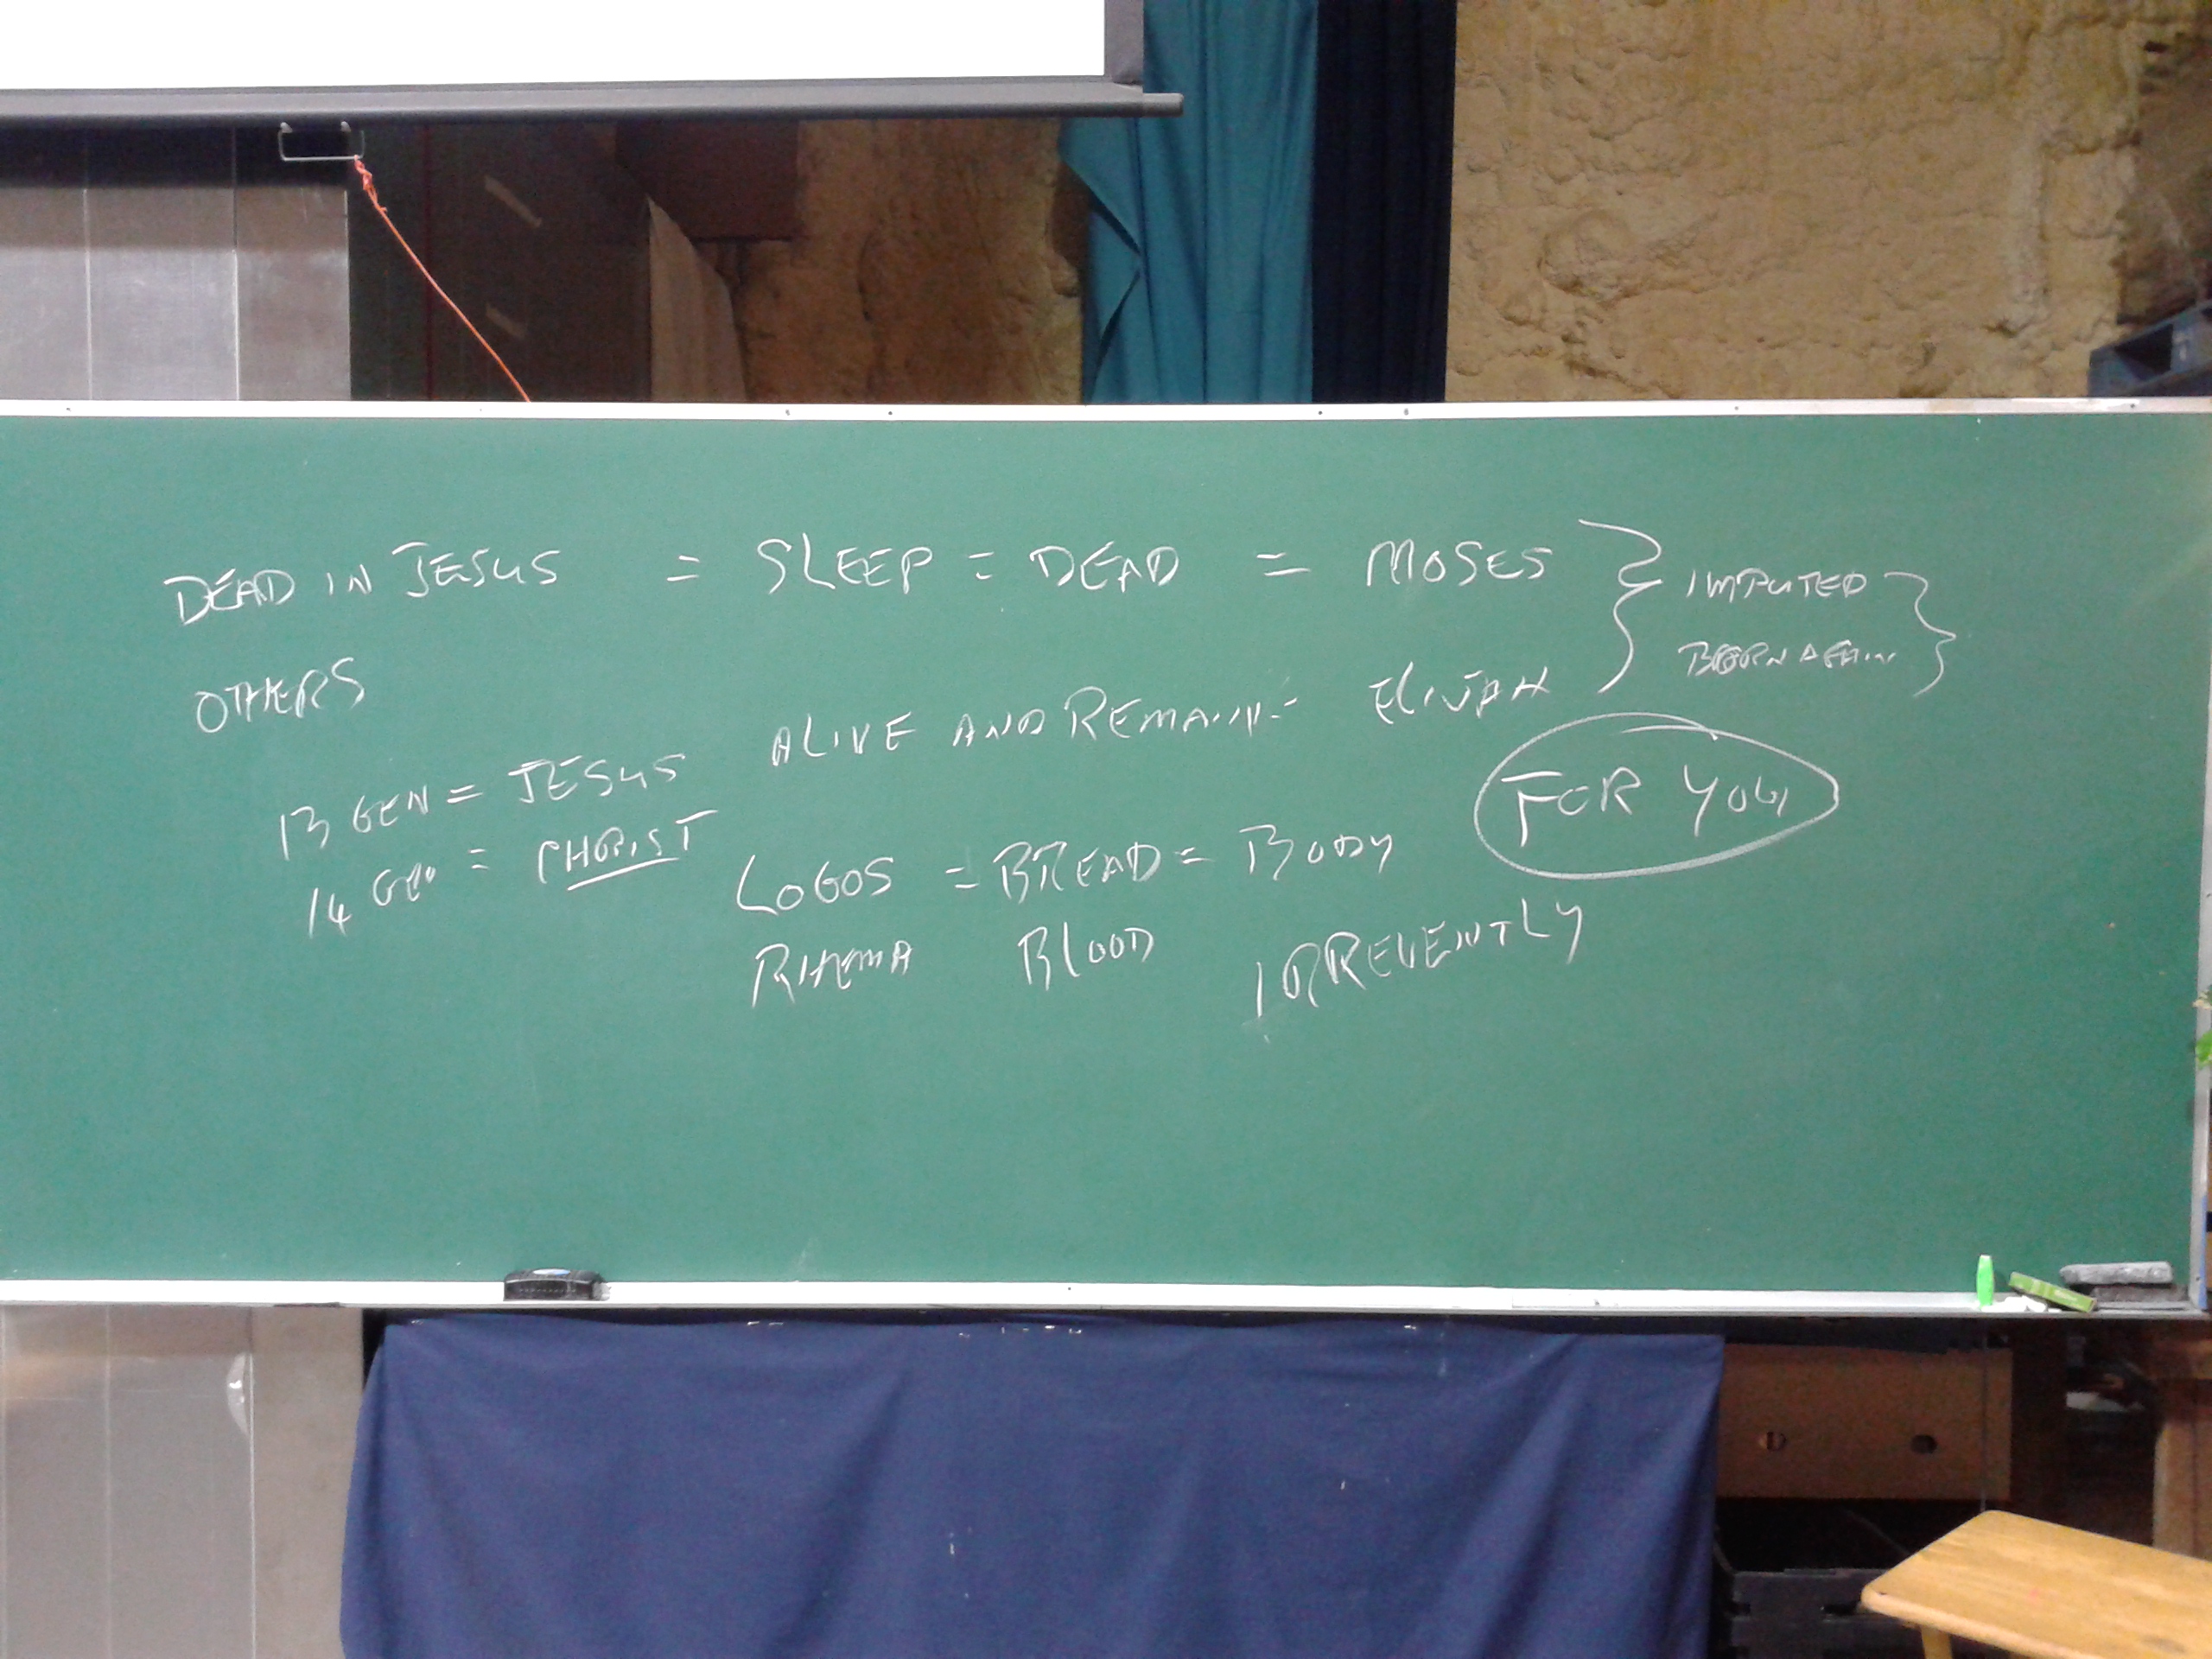 DEAD IN JESUS = SLEEP = DEAD = MOSES } IMPUTED }
BORN AGAIN
OTHERS
ALIVE AND REMAIN = ELIJAH
13 GEN = JESUS
14 GEN = CHRIST
FOR YOU
LOGOS = BREAD = BODY
RHEMA BLOOD IRREVENTLY